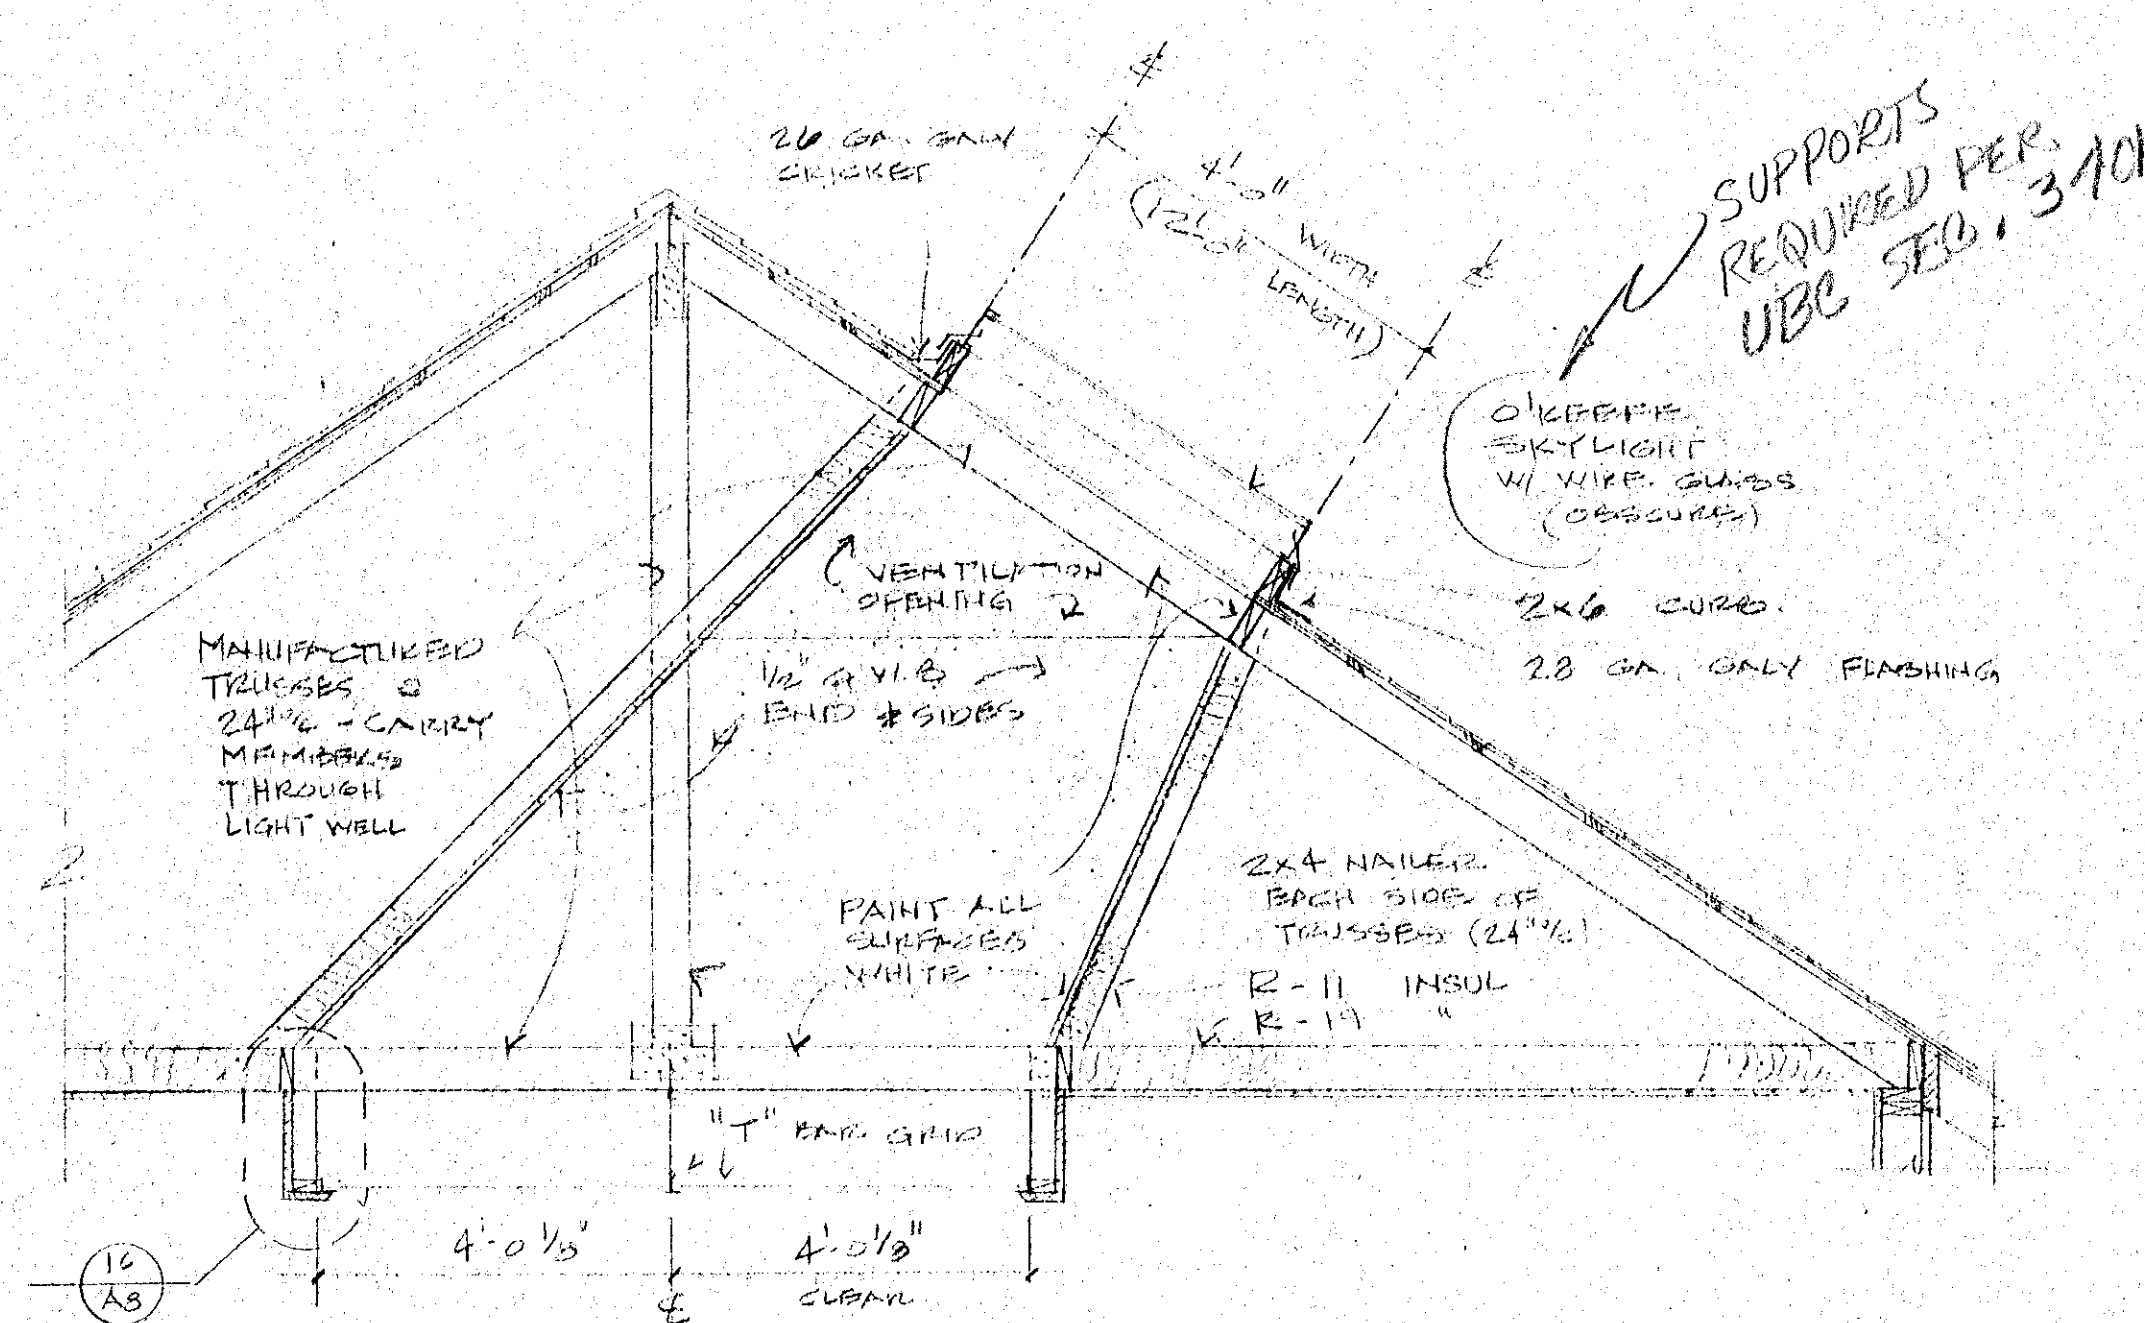 26 GA. GALV
CRICKET
4'-0" WIDTH
(12'-0" LENGTH)
SUPPORTS
REQUIRED PER.
UBC SEC.
O'KEEFFE
SKYLIGHT
W/ WIRE GLASS
(OBSCURE)
VENTILATION
OPENING
2x6 CURB.
28 GA. GALV FLASHING
MANUFACTURED
TRUSSES @
24" O/C - CARRY
MEMBERS
THROUGH
LIGHT WELL
1/2" GYP. B
END & SIDES
2
PAINT ALL
SURFACES
WHITE
2x4 NAILER
EACH SIDE OF
TRUSSES (24" O/C)
R-11 INSUL
R-19 "
"T" BAR GRID
4'-0 1/8" 4'-0 1/8"
CLEAR
16
A8